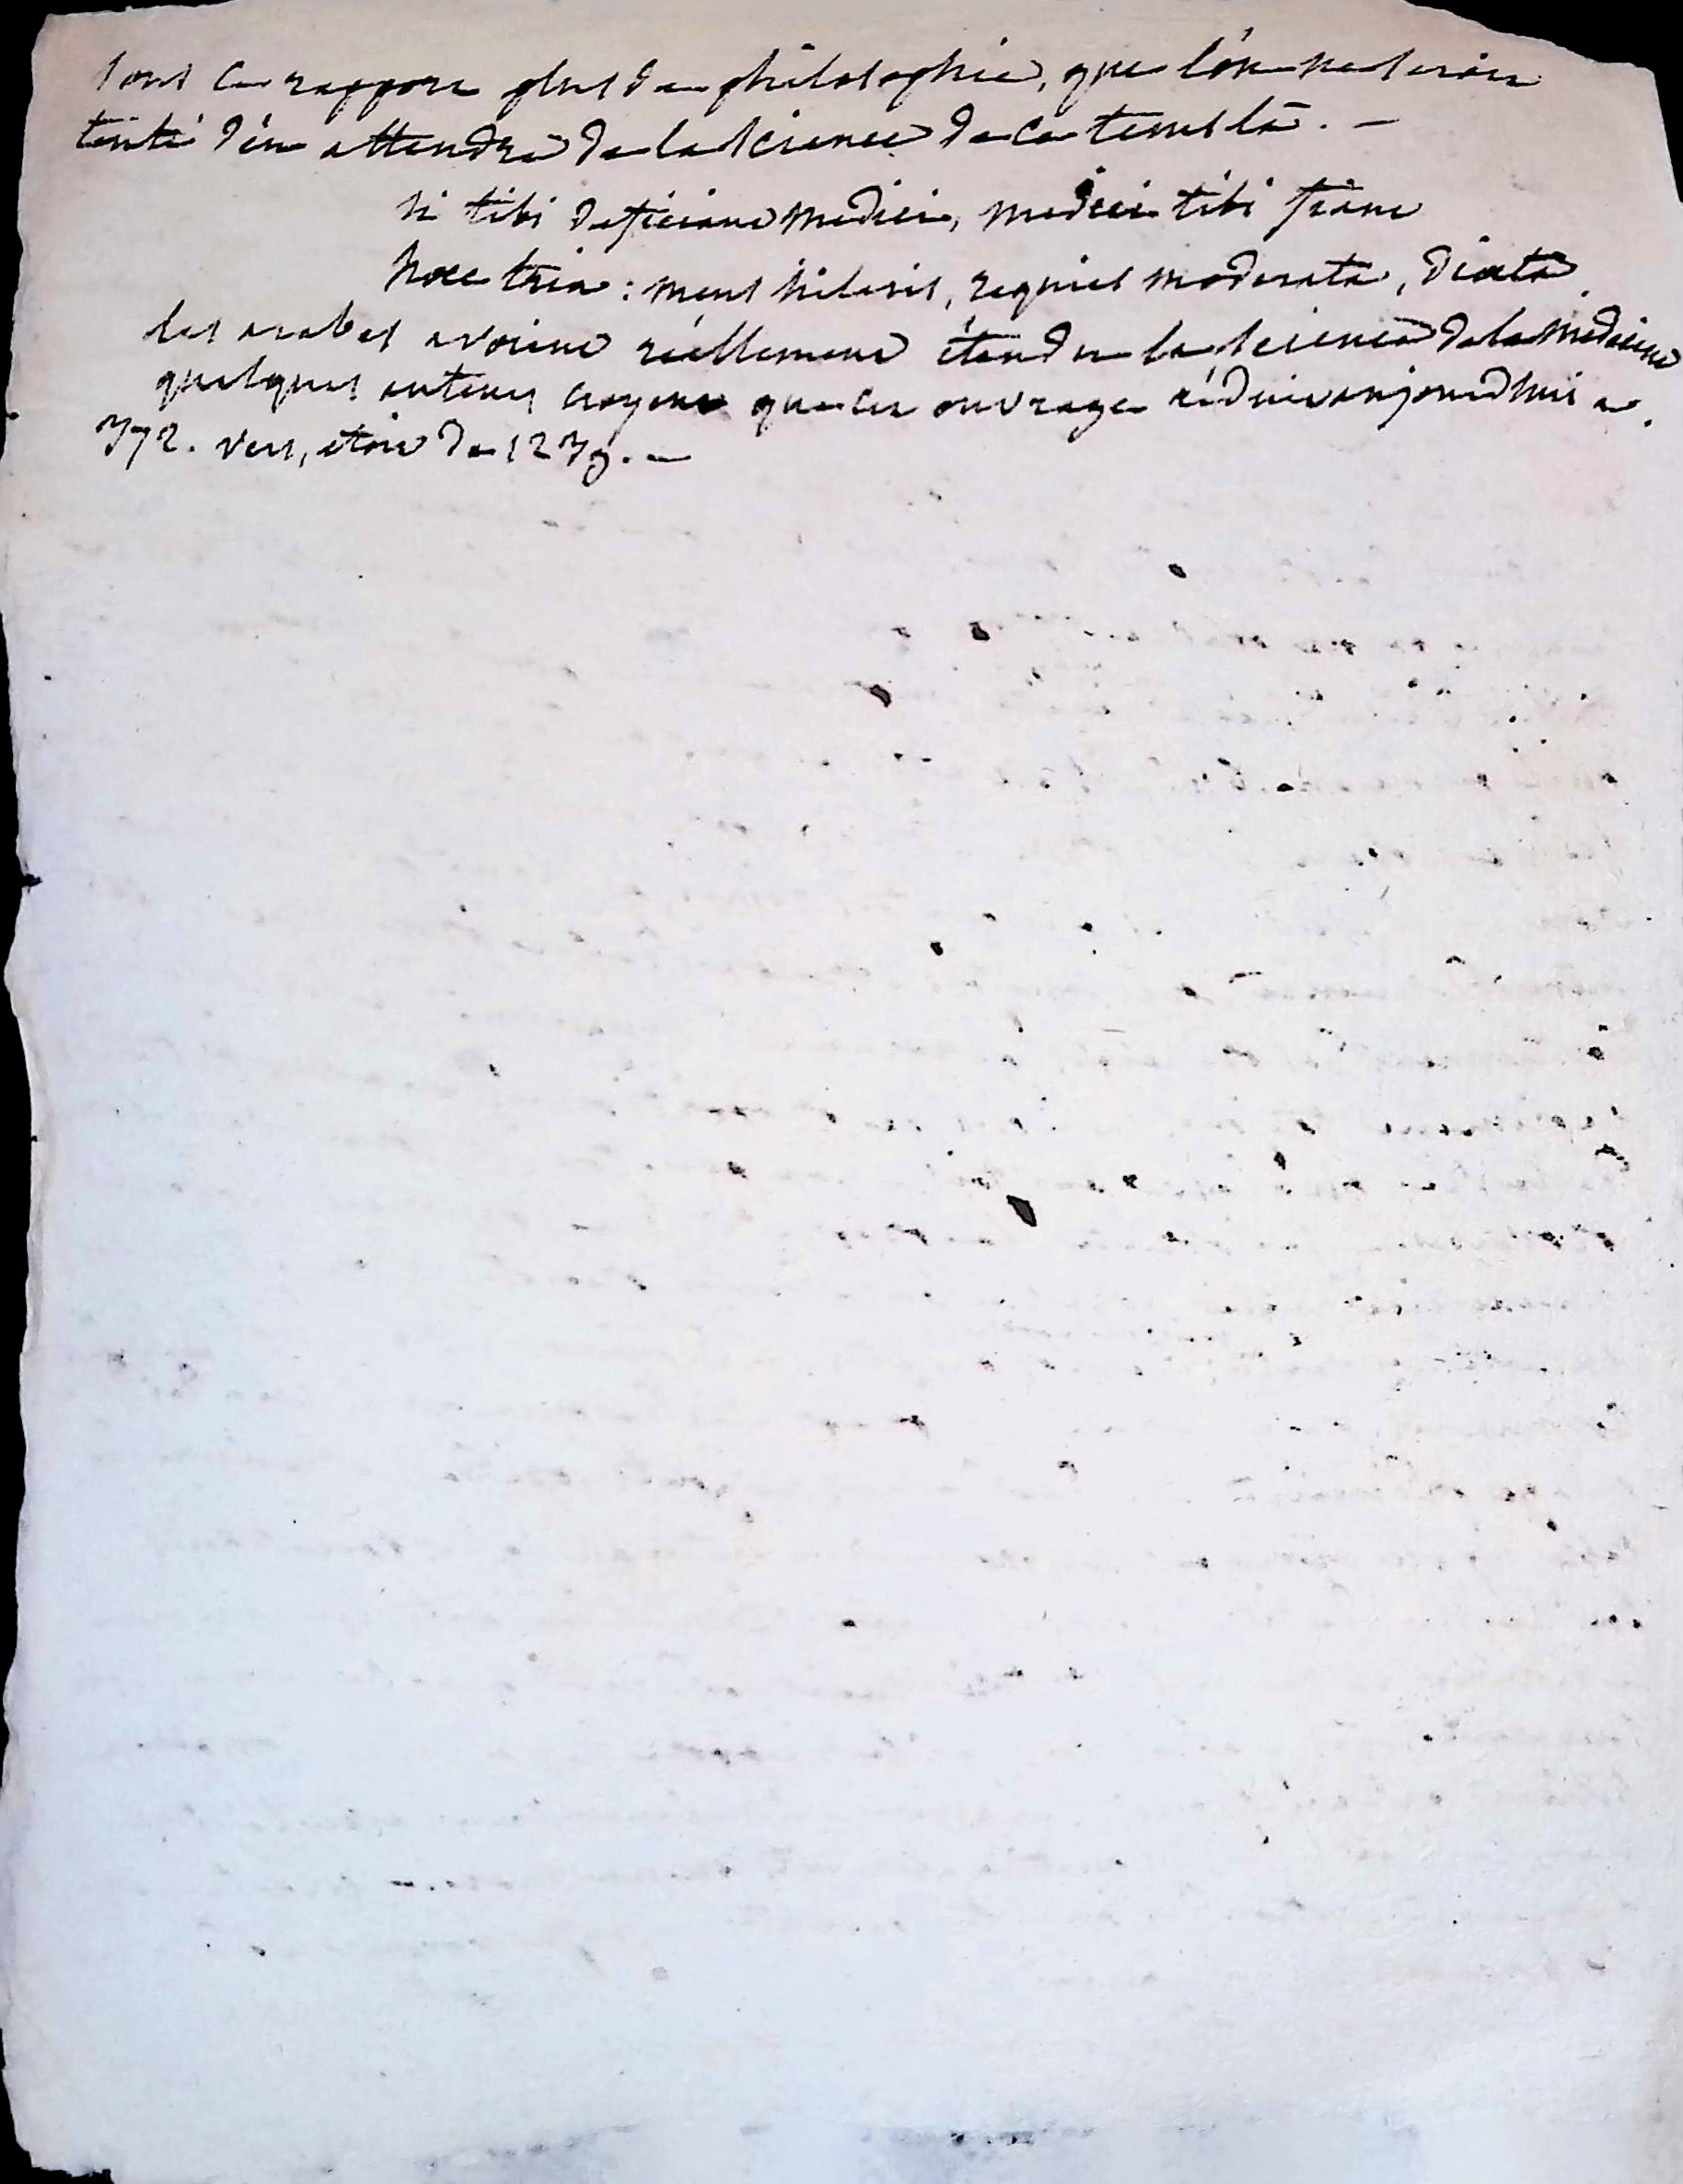 sous ce rapport plus de philosophie, que l'on ne seroit
tenté d'en attendre de la science de ce tems là. —
si tibi deficiant medici, medici tibi fiant
haec tria: mens hilaris, requies moderata, diaeta.
les arabes avoient réellement étendu la science de la medecine
quelques auteurs croyent que cet ouvrage réduit aujourdhui a
372. vers, etoit de 1239. —